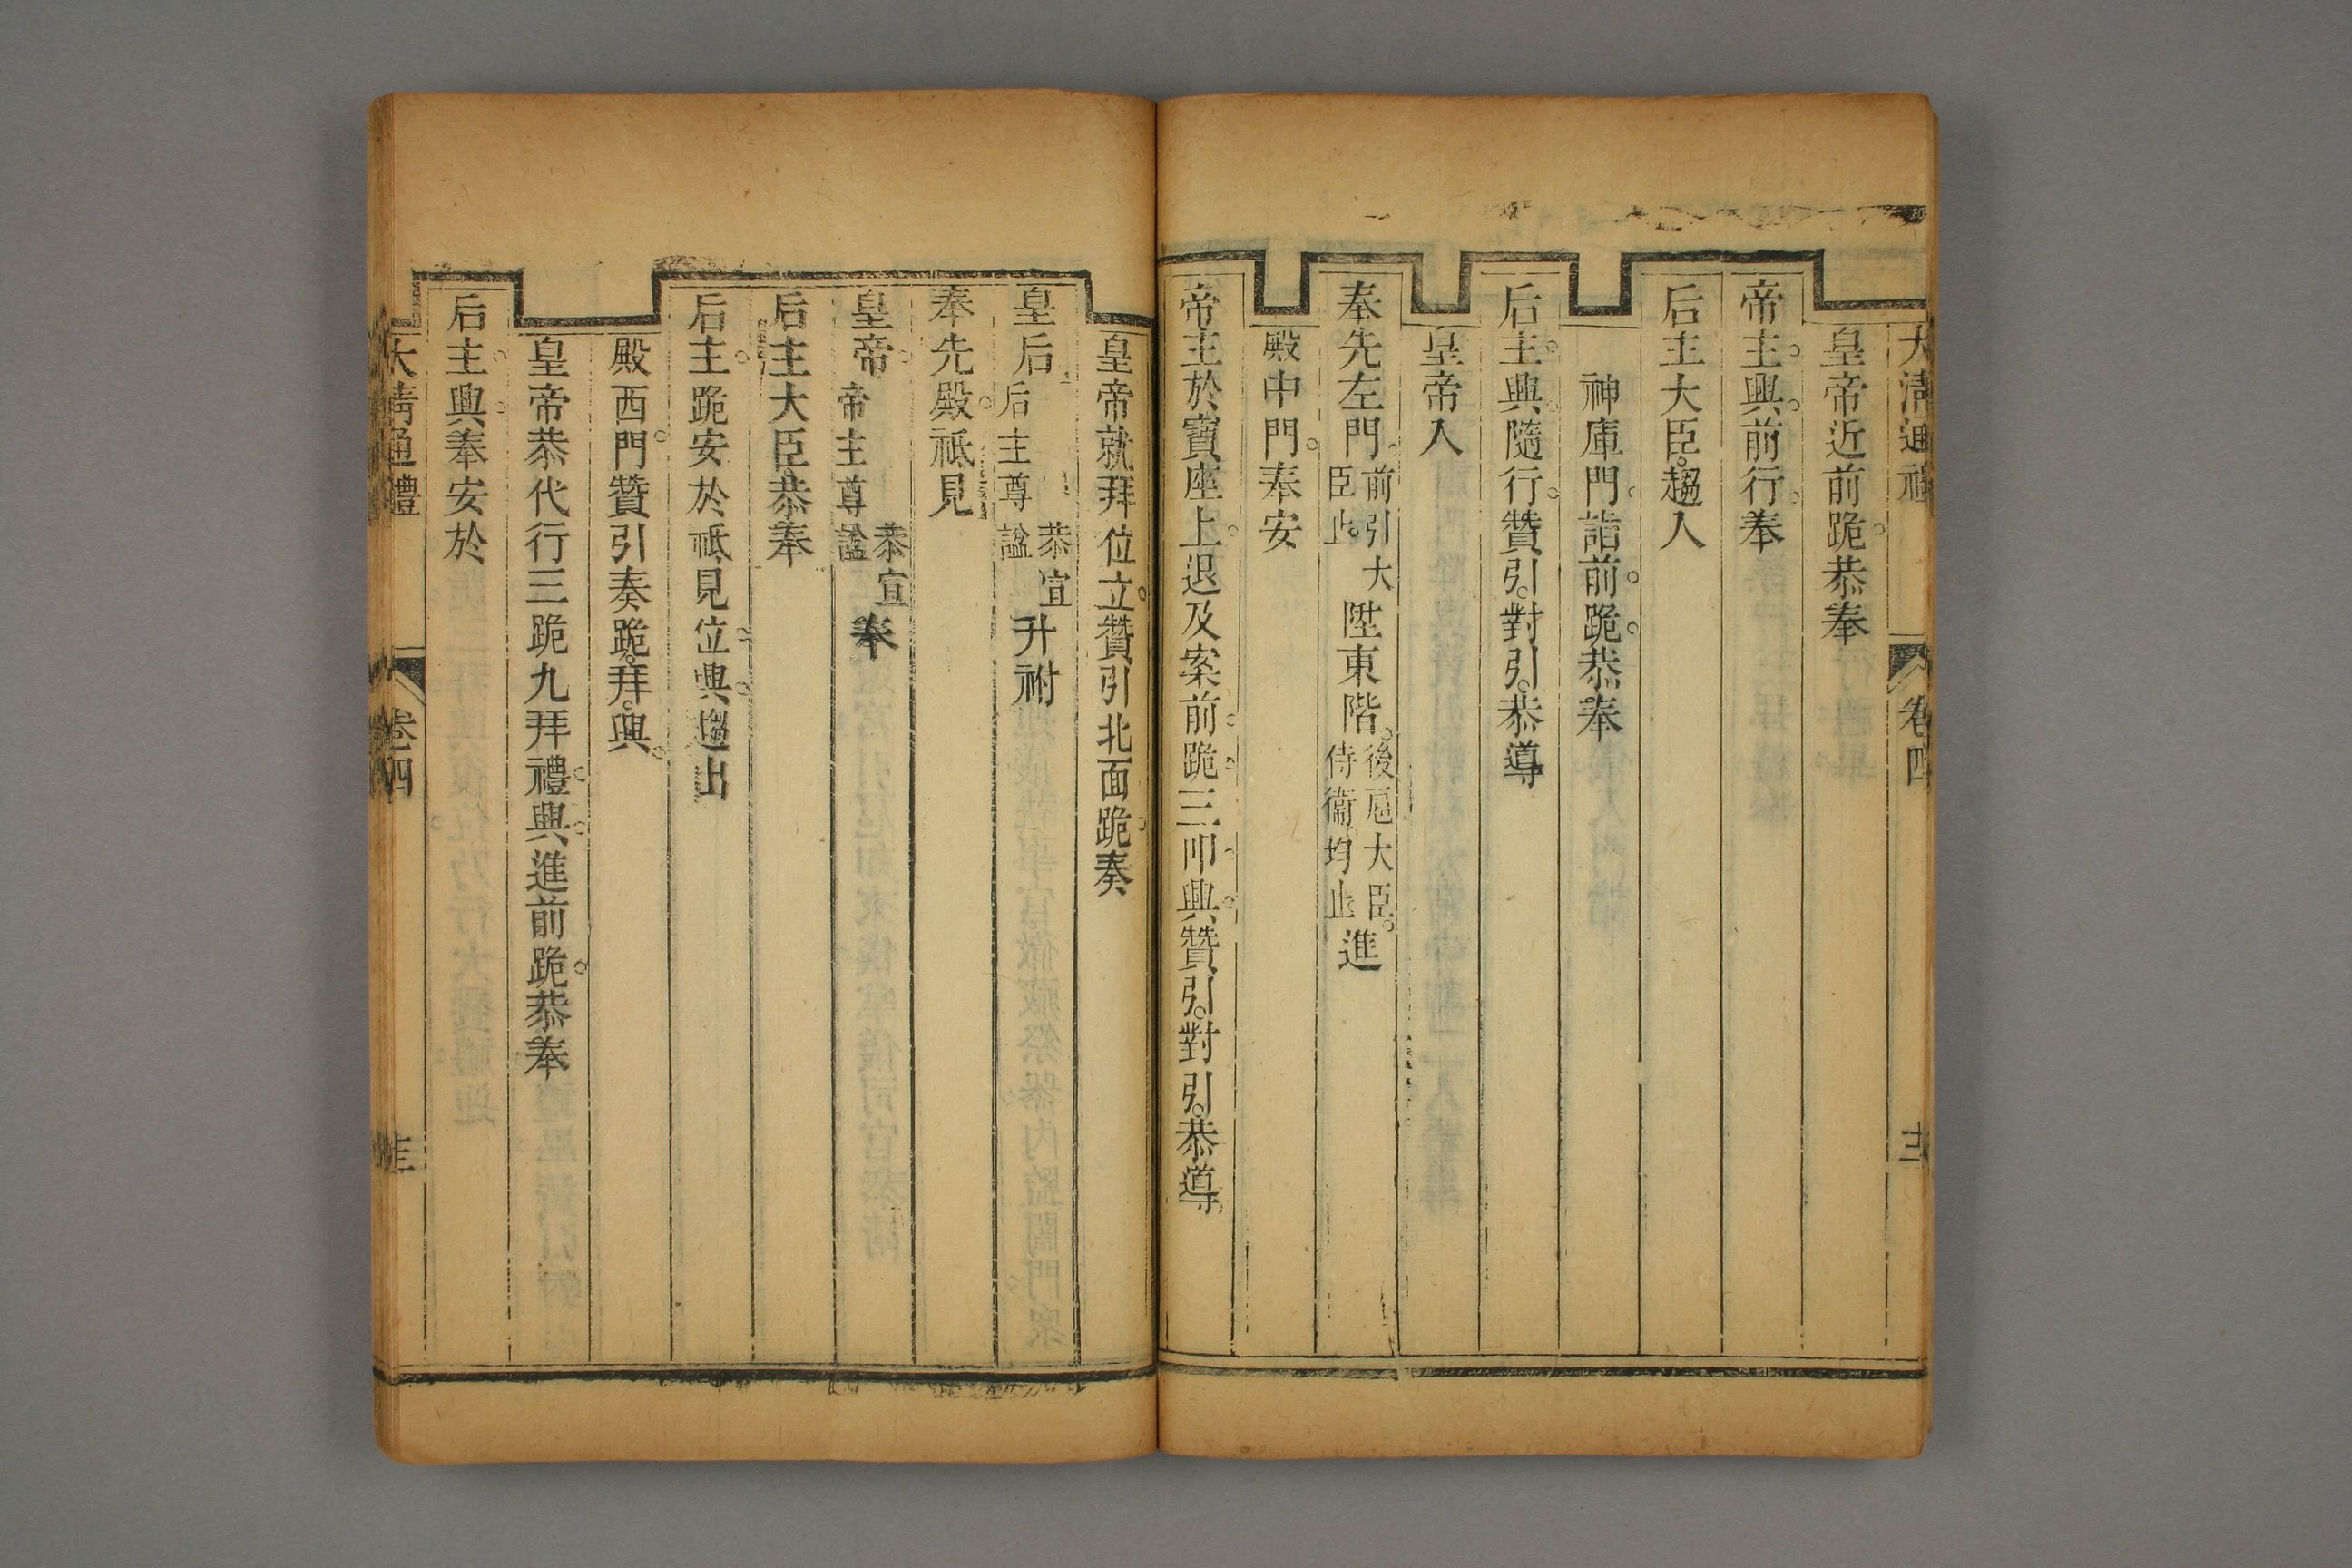 大清通禮 卷四
皇帝近前跪。恭奉
帝主。興。前行。奉
后主大臣。趨入
神庫門。詣前。跪。恭奉
后主。興。隨行。贊引。對引。恭導
皇帝入
奉先左門。前引大臣止。陞東階。後扈大臣。侍衞。均止。進
殿中門。奉安
帝主於寶座上。退及案前。跪。三叩。興。贊引。對引。恭導
皇帝就拜位立。贊引北面跪。奏
皇后后主尊諡恭宣升祔
奉先殿。祗見
皇帝。帝主尊諡恭宣奉
后主大臣。恭奉
后主。跪安於祗見位。興。趨出
殿西門。贊引奏跪。拜。興。
皇帝恭代行三跪九拜禮。興。進前跪。恭奉
后主。興。奉安於
大清通禮 卷四